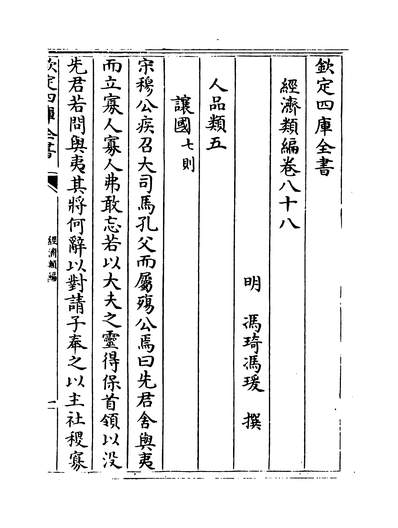 欽定四庫全書
經濟類編卷八十八
明 馮琦馮瑗 撰
人品類五
讓國七則
宋穆公疾召大司馬孔父而屬殤公焉曰先君舍與夷
而立寡人寡人弗敢忘若以大夫之靈得保首領以没
先君若問與夷其將何辭以對請子奉之以主社稷寡
欽定四庫全書
經濟類編
一